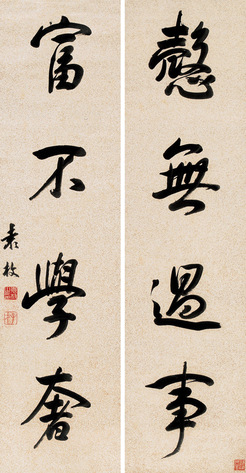 愨無過事
富不學奢
袁枚